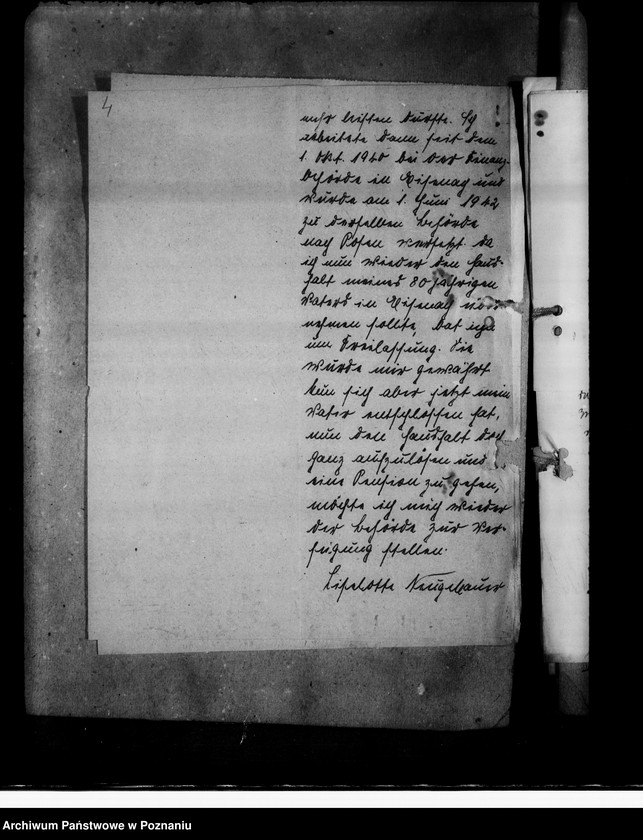 4
mehr leisten durfte. Ich
arbeitete dann seit dem
1. Okt. 1940 bei der Finanz-
behörde in Eisenach und
wurde am 1. Juni 1942
zu derselben Behörde
nach Posen versetzt. Da
ich nun wieder den Haus-
halt meines 80 jährigen
Vaters in Eisenach
nehmen sollte, bat ich
um Freilassung. Sie
wurde mir gewährt
sich aber jetzt mein
Vater entschlossen hat,
nun den Haushalt doch
ganz aufzulösen und
eine Pension zu gehen,
möchte ich mich wieder
der Behörde zur Ver-
fügung stellen.
Liselotte Neugebauer
Archiwum Państwowe w Poznaniu